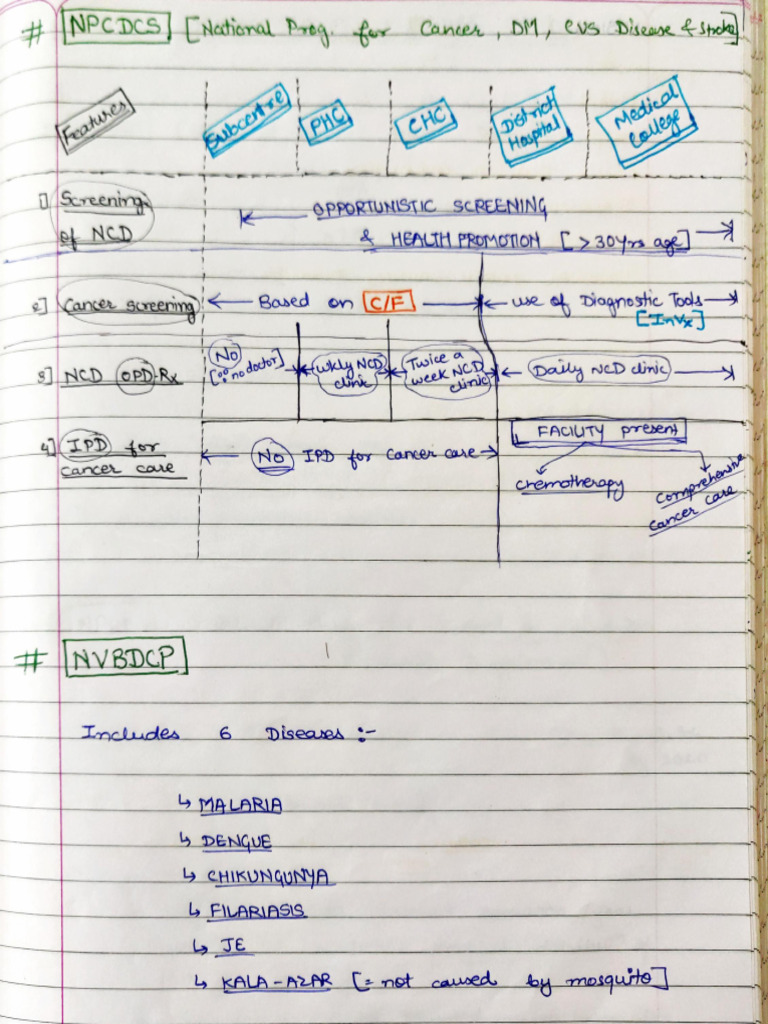 # NPCDCS [National Prog. for Cancer, DM, CVS Disease & Stroke]
Features Subcentre PHC CHC District Hospital Medical College
1] Screening of NCD
OPPORTUNISTIC SCREENING
& HEALTH PROMOTION [>30yrs age]
2] Cancer screening Based on C/F use of Diagnostic Tools
[Invx]
3] NCD OPD-Rx No [∵ no doctor] wkly NCD clinic Twice a week NCD clinic Daily NCD clinic
4] IPD for cancer care No IPD for cancer care FACILITY present
chemotherapy comprehensive cancer care
# NVBDCP
Includes 6 Diseases :-
↳ MALARIA
↳ DENGUE
↳ CHIKUNGUNYA
↳ FILARIASIS
↳ JE
↳ KALA-AZAR [= not caused by mosquito]